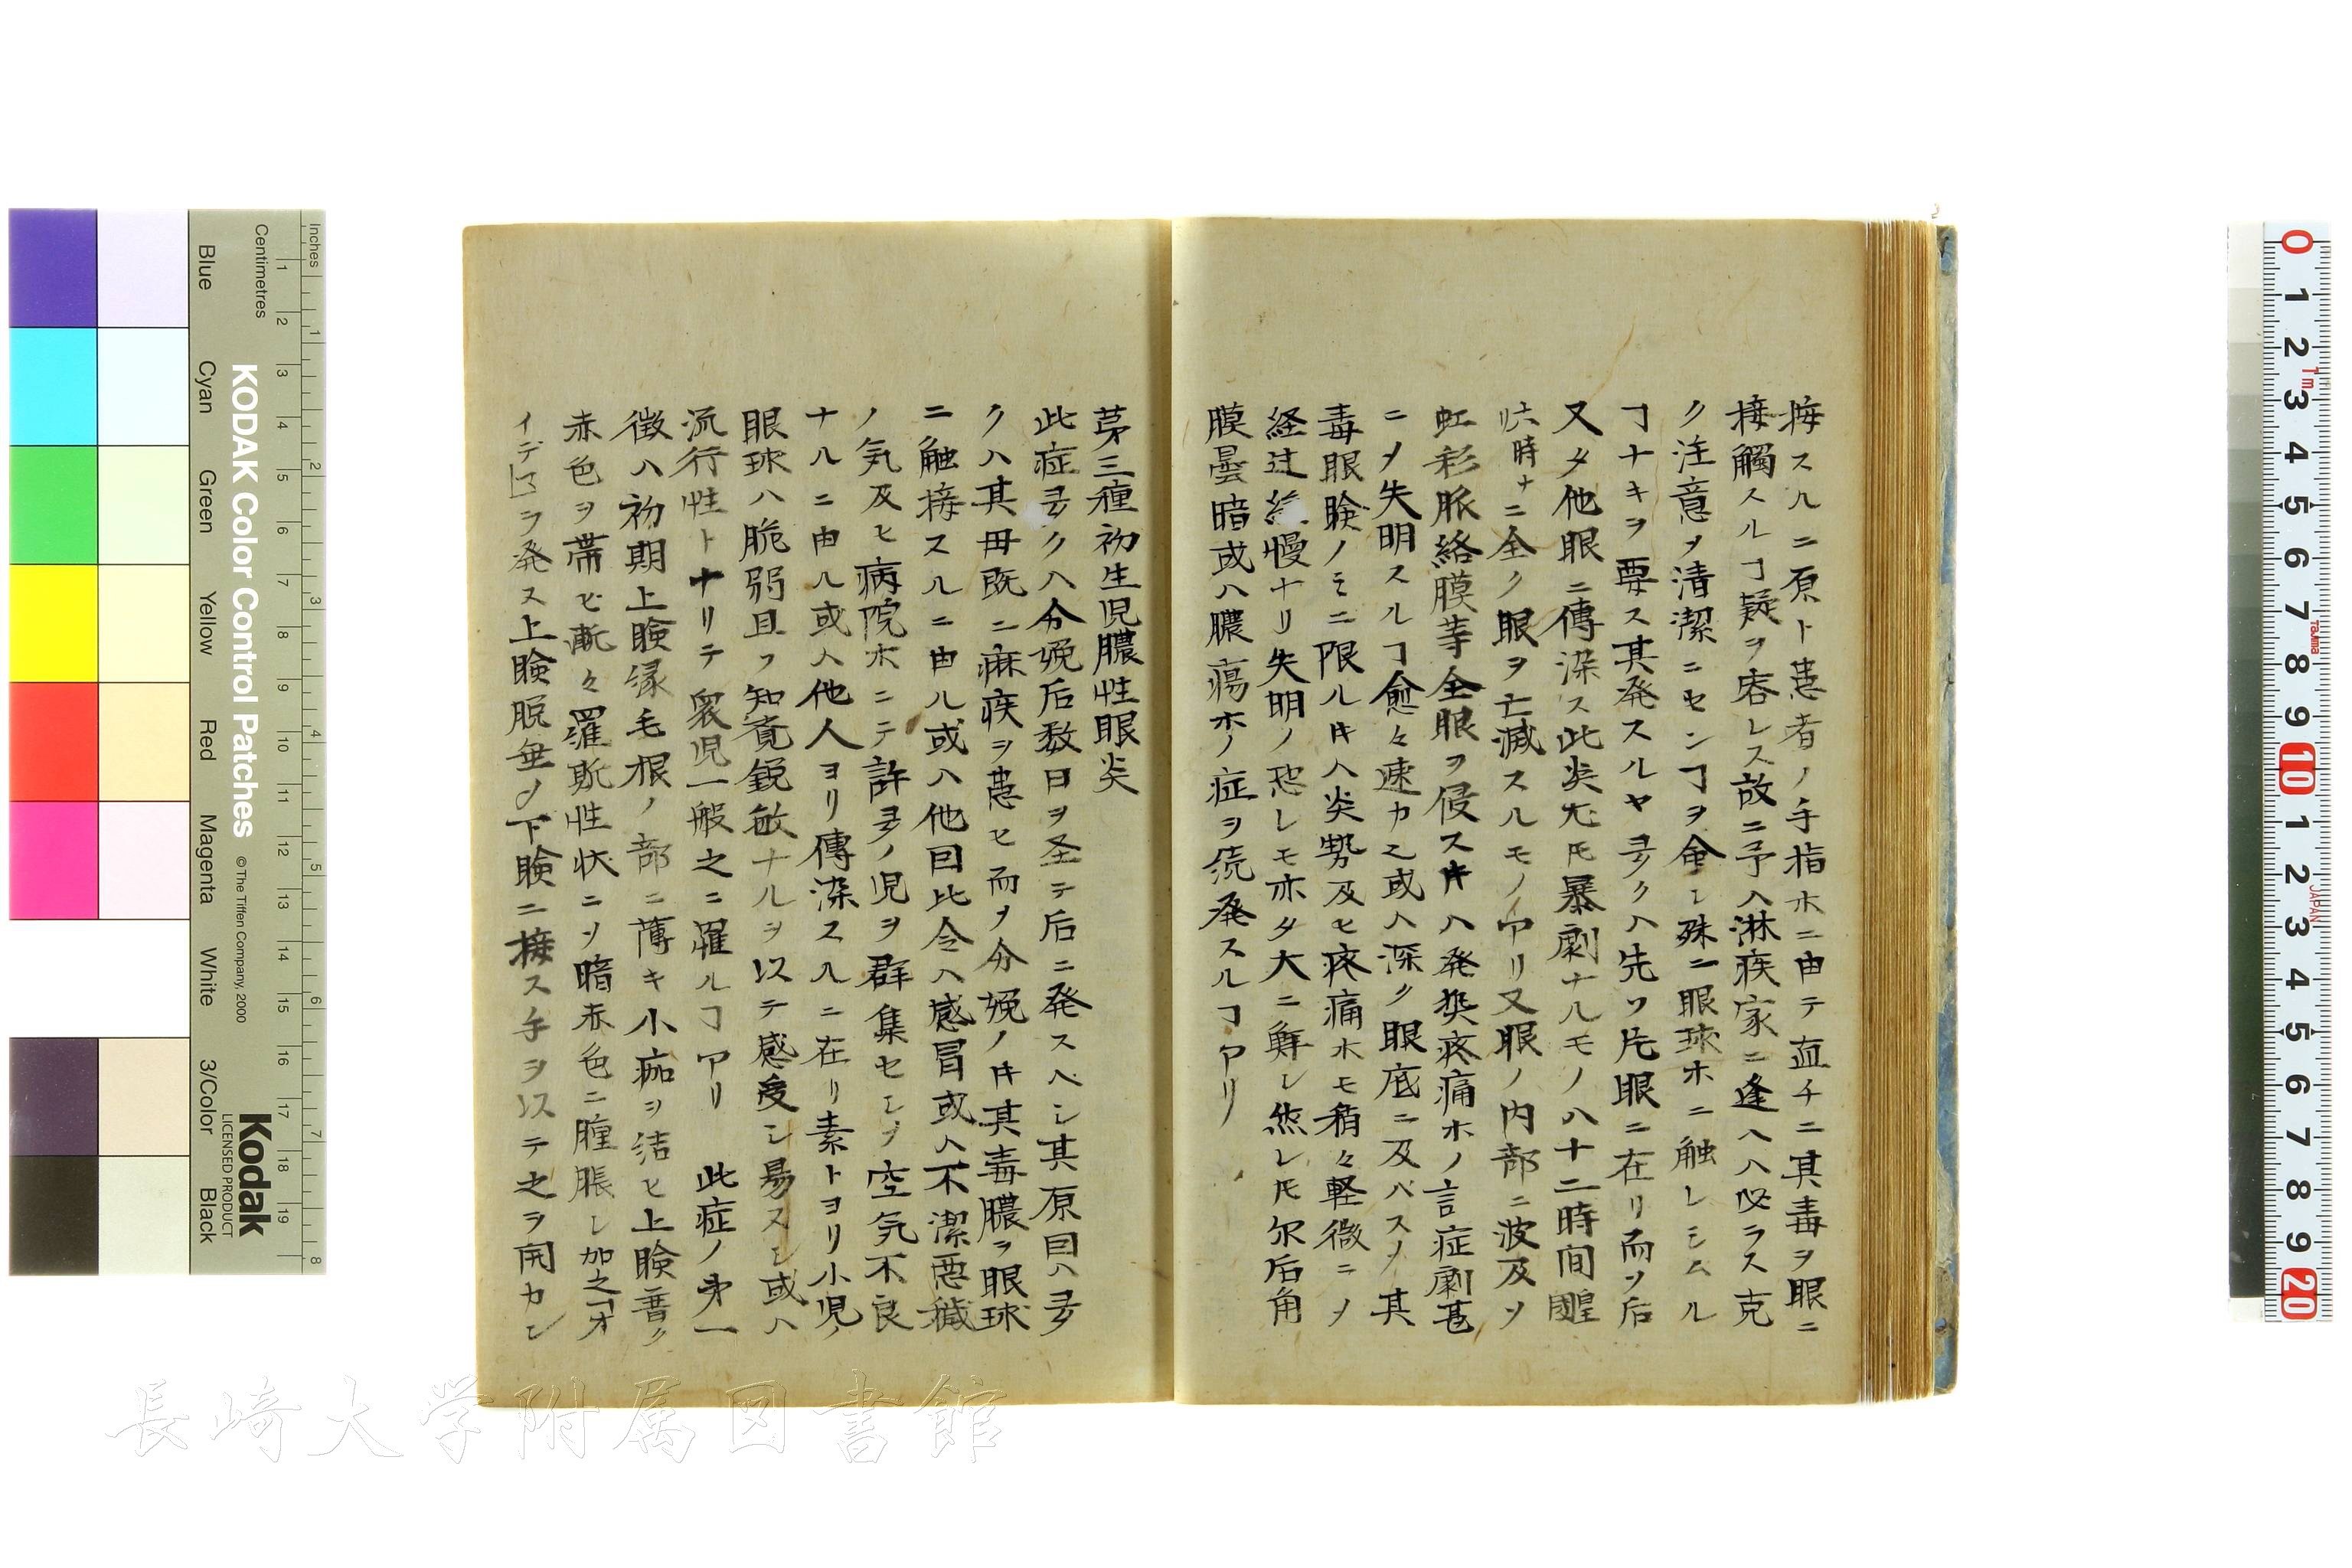 接スルニ原ト患者ノ手指ホニ由テ直チニ其毒ヲ眼ニ
接觸スルヿ疑ヲ容レス故ニ予ハ淋疾家ニ逢ヘハ必ラス克
ク注意ヲ清潔ニセンヿヲ命シ殊ニ眼球ホニ触レシムル
ヿナキヲ要ス其発スルヤ多クハ先ツ片眼ニ在リ而ソ后
又タ他眼ニ傳染ス此炎尤モ暴劇ナルモノハ十二時間
時ナニ全ク眼ヲ亡滅スルモノアリ又眼ノ内部ニ波及ヲ
虹彩脈絡膜等全眼ヲ侵スキハ発炎疼痛ホノ言症劇甚
ニノ失明スルヿ愈々速カニ或ハ深ク眼底ニ及バスノ其
毒眼瞼ノミニ限ルキハ炎勢及ヒ疼痛ホモ稍々軽微ニヲ
経过緩慢ナリ失明ノ恐レモ亦タ大ニ鮮シ然レ𪜈尓后角
膜曇暗或ハ膿瘍ホノ症ヲ続発スルヿアリ
茅三種初生児膿性眼炎
此症多クハ分娩后数日ヲ圣テ后ニ発スヘシ其原因ハ多
クハ其母既ニ麻疾ヲ患ヒ而ヲ分娩ノキ其毒膿ヲ眼球
ニ触接スルニ由ル或ハ他因比令ハ感冒或ハ不潔悪穢
ノ気及ヒ病院ホニテ許多ノ児ヲ群集セシノ空気不良
ナルニ由ル或ハ他人ヨリ傳染スルニ在リ素トヨリ小児ノ
眼球ハ脆弱且ツ知覚鋭敏ナルヲ以テ感受シ易スシ或ハ
流行性トナリテ衆児一般之ニ罹ルヿアリ 此症ノ茅一
徴ハ初期上瞼縁毛根ノ部ニ薄キ小痂ヲ結ヒ上瞼普ク
赤色ヲ帯ヒ漸々羅斯性状ニソ暗赤色ニ腫脹シ加之オ
イデマヲ発ス上瞼脱垂ノ下瞼ニ接ス手ヲ以テ之ヲ開カン
Inches
Centimetres
1 2 3 4 5 6 7 8 9 10 11 12 13 14 15 16 17 18 19
1 2 3 4 5 6 7 8
KODAK Color Control Patches © The Tiffen Company, 2000 Kodak
LICENSED PRODUCT
Blue Cyan Green Yellow Red Magenta White 3/Color Black
0 1 2 3 4 5 6 7 8 9 10 1 2 3 4 5 6 7 8 9 20
1m
Tajima
JAPAN
長崎大学附属図書館